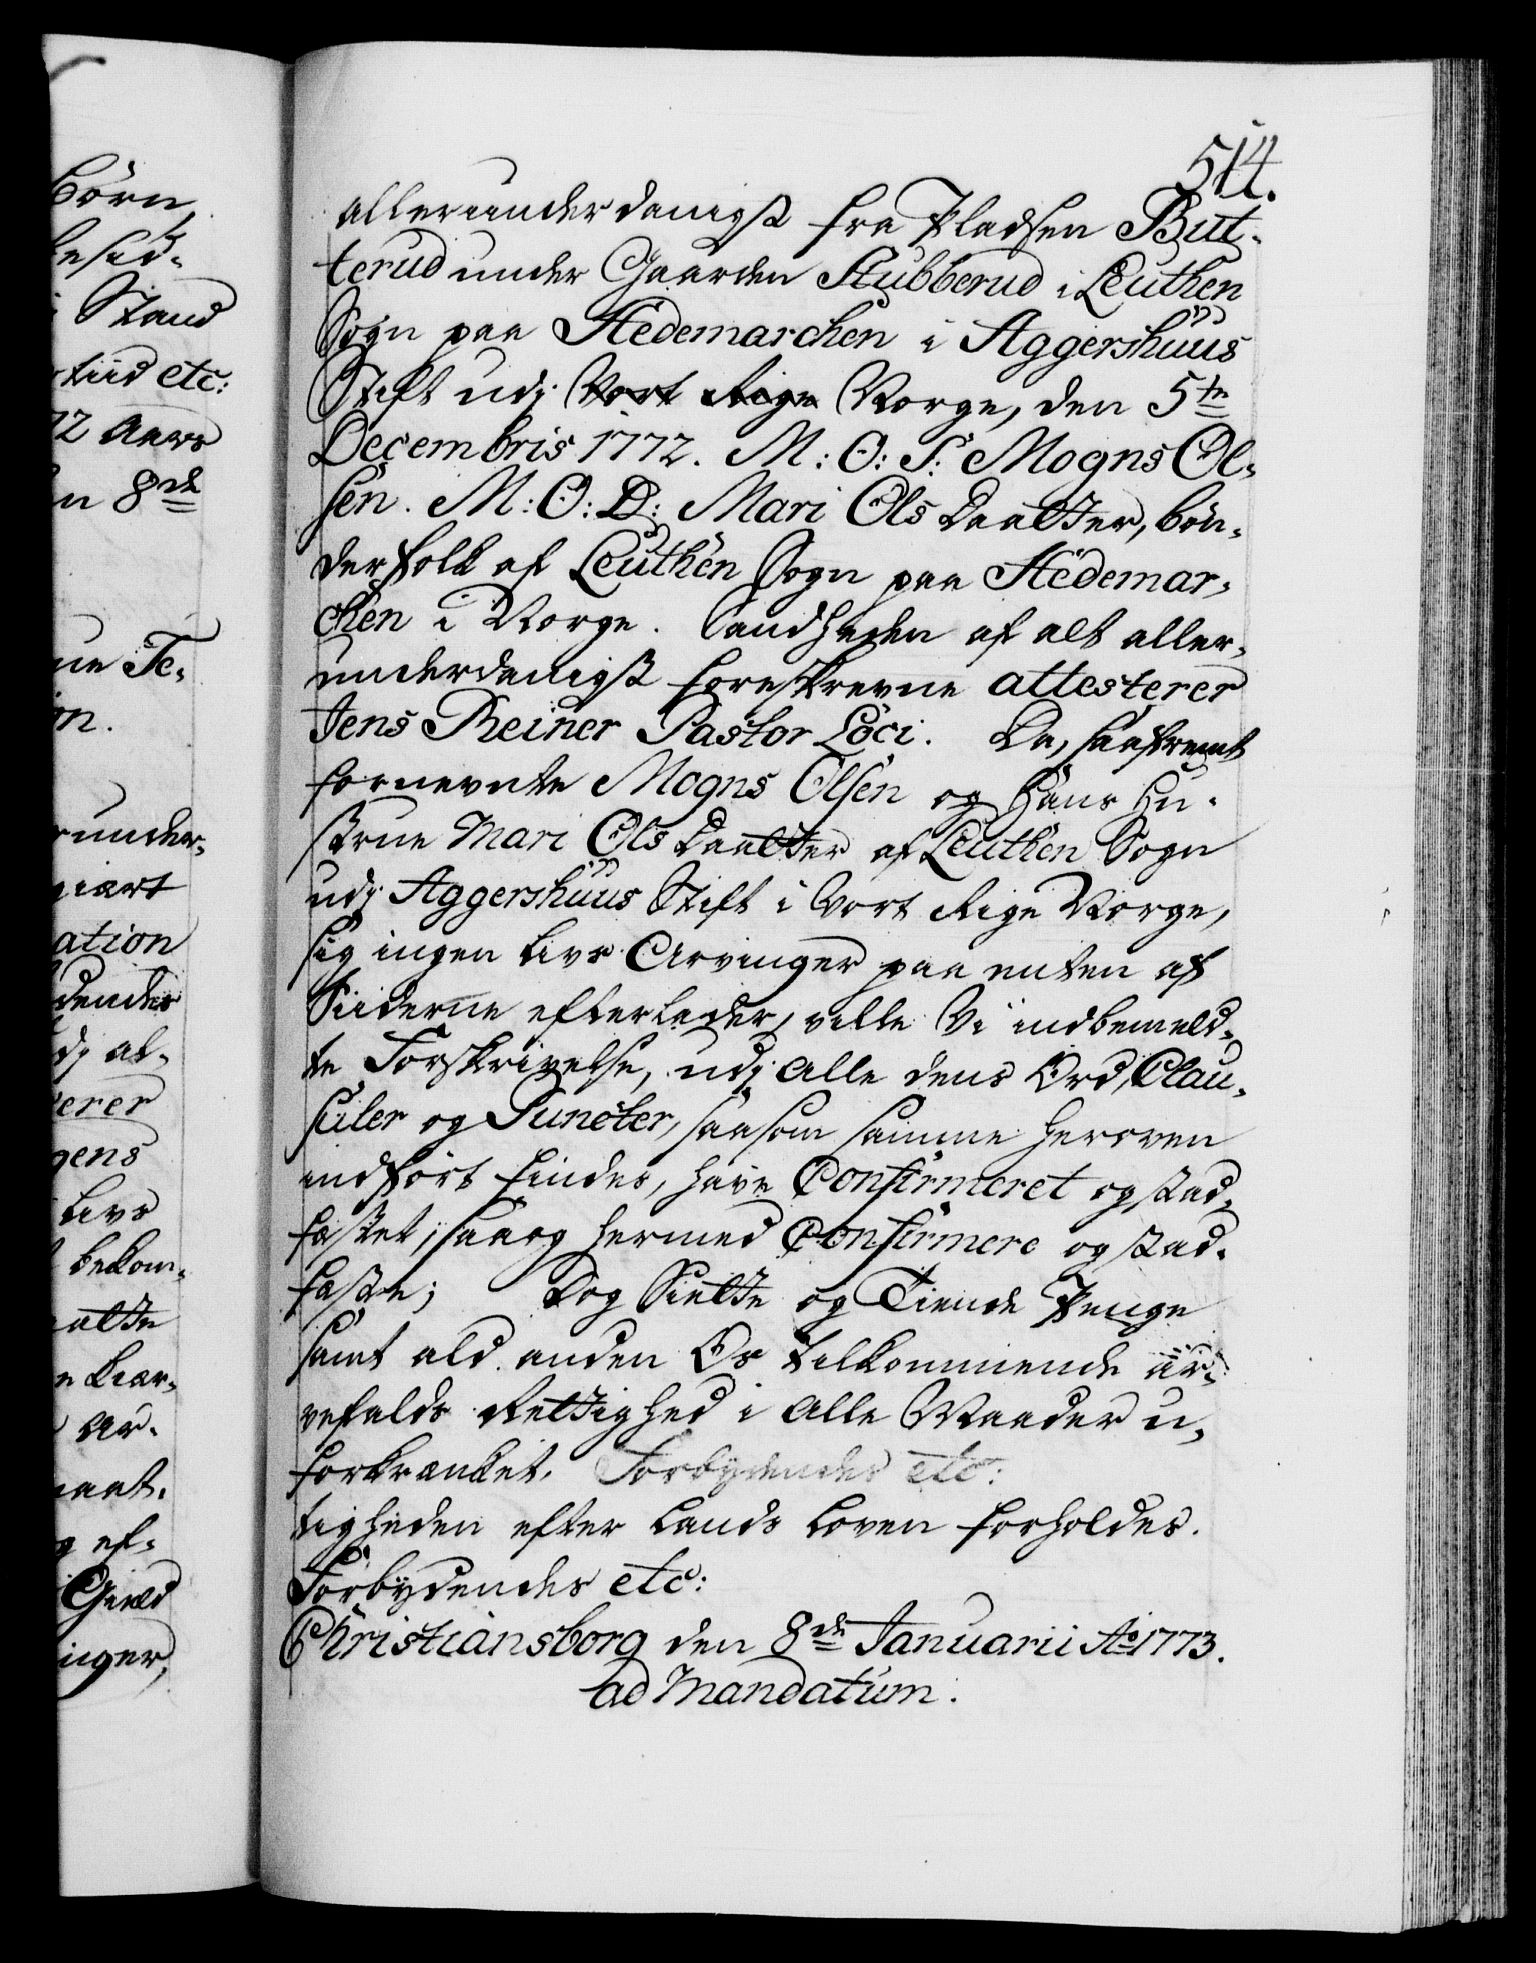 514.
allerunderdanigst fra Pladsen But-
terud under Gaarden Stubberud i Leuthen
Sogn paa Hedemarchen i Aggershuus
Stift udj Vort Rige Norge, den 5te
Decembris 1772. M: O: S: Mogns Ol-
sen. M: O: D: Mari Ols Daatter, bøn-
derfolk af Leuthen Sogn paa Hedemar-
chen i Norge. Sandheden af alt aller-
underdanigst foreskrevne attesterer
Jens Reiner Pastor Loci. Da, saafremt
fornevnte Mogns Olsen og Hans Hu-
strue Mari Ols Daatter af Leuthen Sogn
udj Aggershuus Stift i Vort Rige Norge,
sig ingen Livs Arvinger paa enten af
Siiderne efterlader, ville Vi indbemeld-
te Forskrivelse, udj Alle dens Ord, Clau-
suler og Puncter, saasom samme herover
indført findes, have Confirmeret og stad-
fæstet, saa og hermed Confirmere og stad-
fæste; Dog Siette og Tiende Penge
samt ald anden Os tilkommende ar-
vefalds Rettighed i Alle Maader u-
forkrænket. Forbydendes etc:
tigheden efter Lands Loven forholdes.
Forbydendes etc:
Christiansborg den 8de Januarii Ao 1773.
ad Mandatum.
Børn,
Stand
tiid etc:
72 Aars
8de
ue Te-
on.
runder-
giært
ation
dendes
dj al-
erer
gens
Livs
bekom-
atte
Ar-
g ef-
Gield
inger,